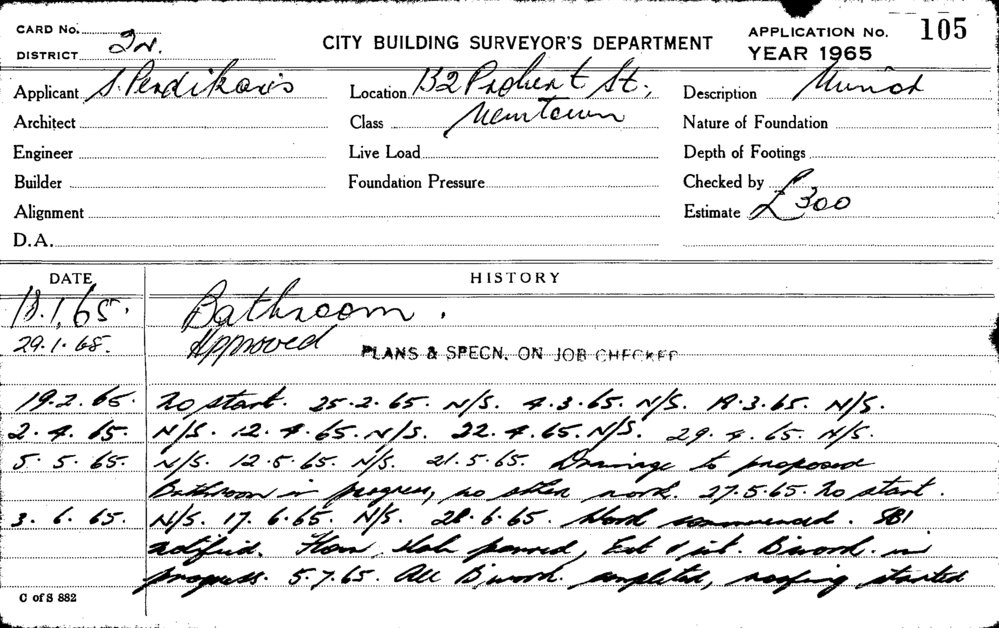 CARD No.
DISTRICT
CITY BUILDING SURVEYOR'S DEPARTMENT
APPLICATION No. 105
YEAR 1965
Applicant S. Perdikaris Location 132 Probert St., Description
Architect Class Newtown Nature of Foundation
Engineer Live Load Depth of Footings
Builder Foundation Pressure Checked by
Alignment Estimate £300
D.A.
DATE HISTORY
18.1.65. Bathroom.
29.1.65. Approved PLANS & SPECN. ON JOB CHECKED
19.2.65. No start. 25.2.65. N/S. 4.3.65. N/S. 18.3.65. N/S.
2.4.65. N/S. 12.4.65. N/S. 22.4.65. N/S. 29.4.65. N/S.
5.5.65. N/S. 12.5.65. N/S. 21.5.65. Drainage to proposed
Bathroom in progress, no other work. 27.5.65. No start.
3.6.65. N/S. 17.6.65. N/S. 28.6.65. Work commenced. SBI
notified. Floor slab poured, Ext & int. B'work. in
progress. 5.7.65. All B'work. completed, roofing started
C of S 882